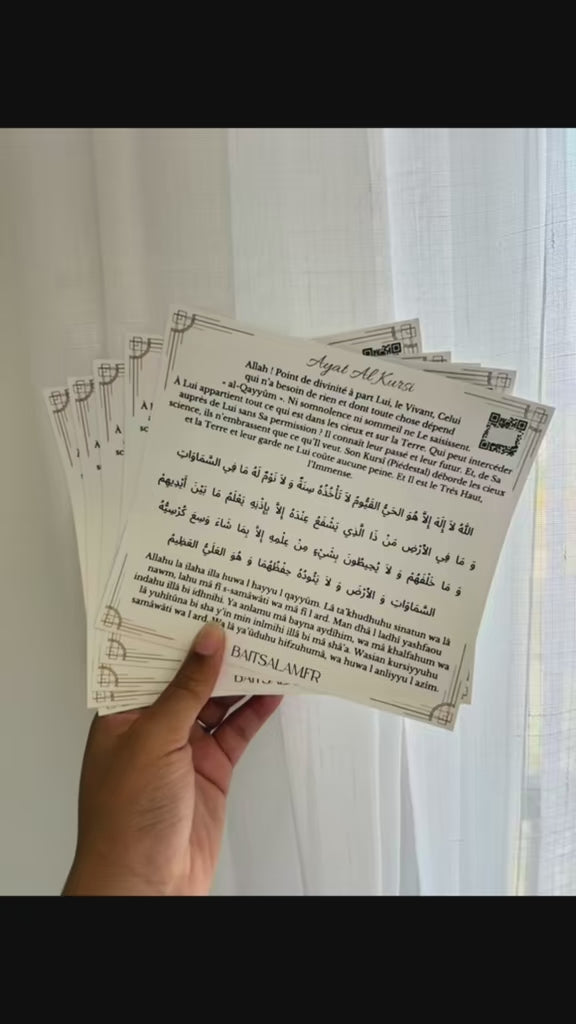 Ayat Al Kursi
Allah ! Point de divinité à part Lui, le Vivant, Celui
qui n'a besoin de rien et dont toute chose dépend
« al-Qayyûm ». Ni somnolence ni sommeil ne Le saisissent.
À Lui appartient tout ce qui est dans les cieux et sur la Terre. Qui peut intercéder
auprès de Lui sans Sa permission ? Il connaît leur passé et leur futur. Et, de Sa
science, ils n'embrassent que ce qu'Il veut. Son Kursi (Piédestal) déborde les cieux
et la Terre et leur garde ne Lui coûte aucune peine. Et Il est le Très Haut,
l'Immense.
اللهُ لاَ إِلَهَ إِلاَّ هُوَ الحَيُّ القَيُّومُ لاَ تَأْخُذُهُ سِنَةٌ وَ لاَ نَوْمٌ لَهُ مَا فِي السَّمَاوَاتِ
وَ مَا فِي الأَرْضِ مَنْ ذَا الَّذِي يَشْفَعُ عِنْدَهُ إِلاَّ بِإِذْنِهِ يَعْلَمُ مَا بَيْنَ أَيْدِيهِمْ
وَ مَا خَلْفَهُمْ وَ لاَ يُحِيطُونَ بِشَيْءٍ مِنْ عِلْمِهِ إِلاَّ بِمَا شَاءَ وَسِعَ كُرْسِيُّهُ
السَّمَاوَاتِ وَ الأَرْضَ وَ لاَ يَئُودُهُ حِفْظُهُمَا وَ هُوَ العَلِيُّ العَظِيمُ
Allahu la ilaha illa huwa l hayyu l qayyûm. Lâ ta'khudhuhu sinatun wa lâ
nawm, lahu mâ fî s-samâwâti wa mâ fi l ard. Man dhâ l ladhî yashfaou
indahu illâ bi idhnihi. Ya anlamu mâ bayna aydihim, wa mâ khalfahum wa
lâ yuhitûna bi sha y'in min inlmihi illâ bi mâ shâ'a. Wasian kursiyyuhu
samâwâti wa l ard. Wa lâ ya'ûduhu hifzuhumâ, wa huwa l anliyyu l azim.
BAITSALAMFR